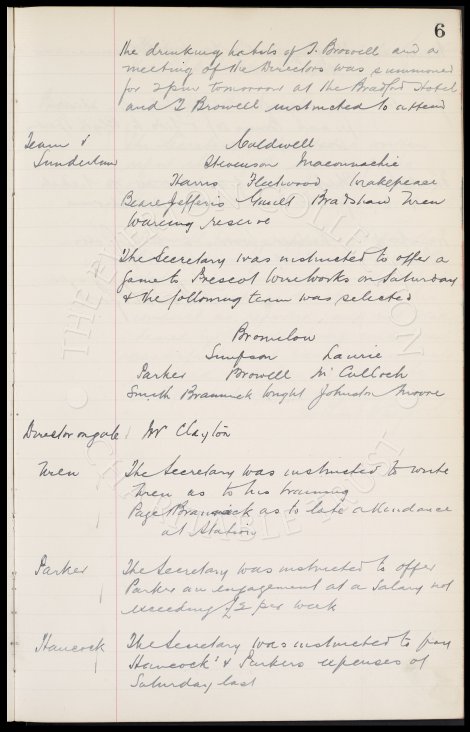 6
the drinking habits of T. Browell and a
meeting of the Directors was summoned
for 2 pm tomorrow at the Bradford Hotel
and T Browell instructed to attend
Team v Caldwell
Sunderland Stevenson Maconnachie
Harris Fleetwood Makepeace
Beare Jefferis Gault Bradshaw Wren
Wareing reserve
The Secretary was instructed to offer a
game to Prescot Wireworks on Saturday
& the following team was selected
Bromilow
Simpson Laurie
Parker Browell McCulloch
Smith Brannick Wright Johnston Moore
Director on gate Mr Clayton
Wren The Secretary was instructed to write
Wren as to his training
Page & Brannick as to late attendance
at Station
Parker The Secretary was instructed to offer
Parker an engagement at a Salary not
exceeding £2 per week
Hancock The Secretary was instructed to pay
Hancock's & Parkers expenses of
Saturday last
THE EVERTON COLLECTION
CHARITABLE TRUST